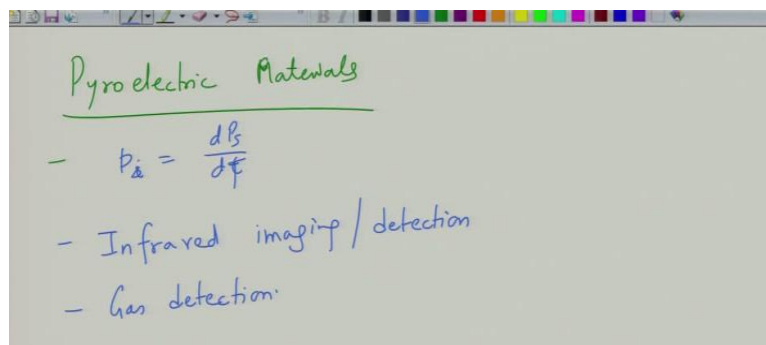 Pyroelectric Materials
- p_i = dP_s/dT
- Infrared imaging / detection
- Gas detection.